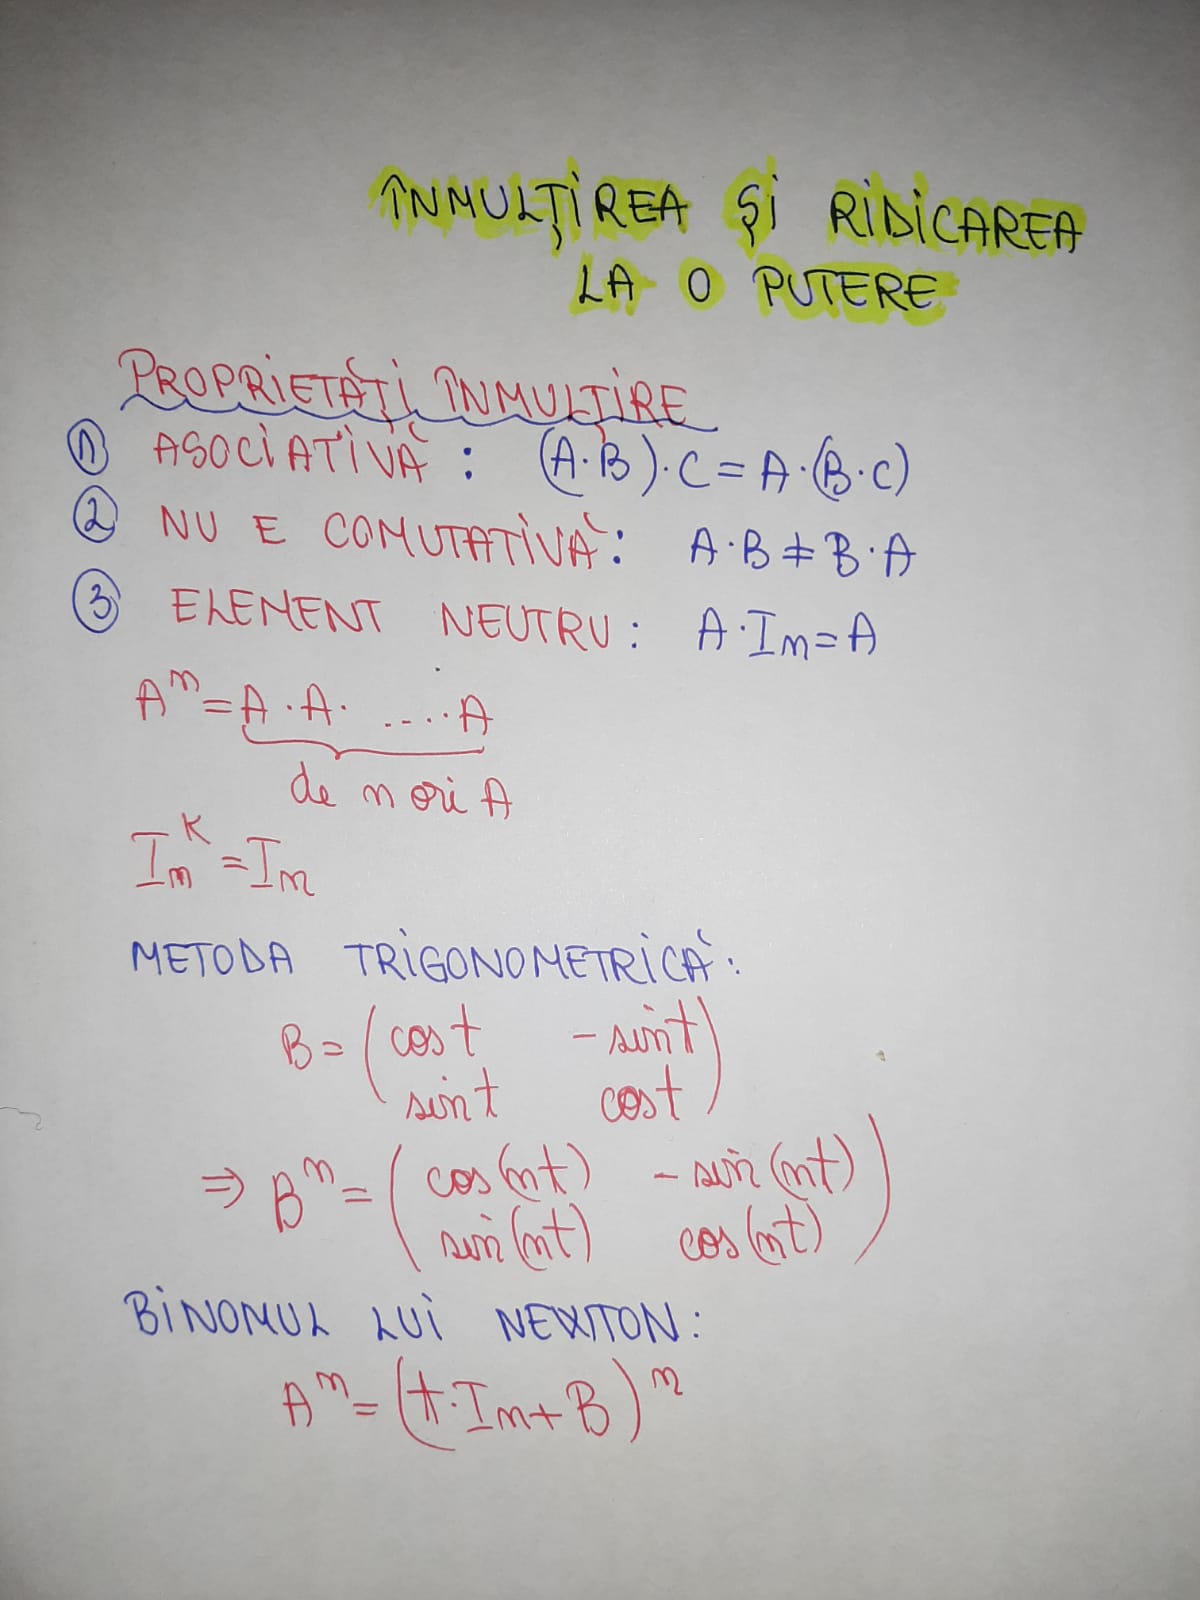 ÎNMULȚIREA ȘI RIDICAREA
LA O PUTERE
PROPRIETĂȚI ÎNMULȚIRE
① ASOCIATIVĂ: (A·B)·C=A·(B·C)
② NU E COMUTATIVĂ: A·B≠B·A
③ ELEMENT NEUTRU: A·Iₙ=A
Aⁿ=A·A· ....·A
de n ori A
Iₙᴷ=Iₙ
METODA TRIGONOMETRICĂ:
B=(cos t -sin t)
(sin t cos t)
⇒ Bⁿ=(cos(nt) -sin(nt))
(sin(nt) cos(nt))
BINOMUL LUI NEWTON:
Aⁿ=(t·Iₙ+B)ⁿ